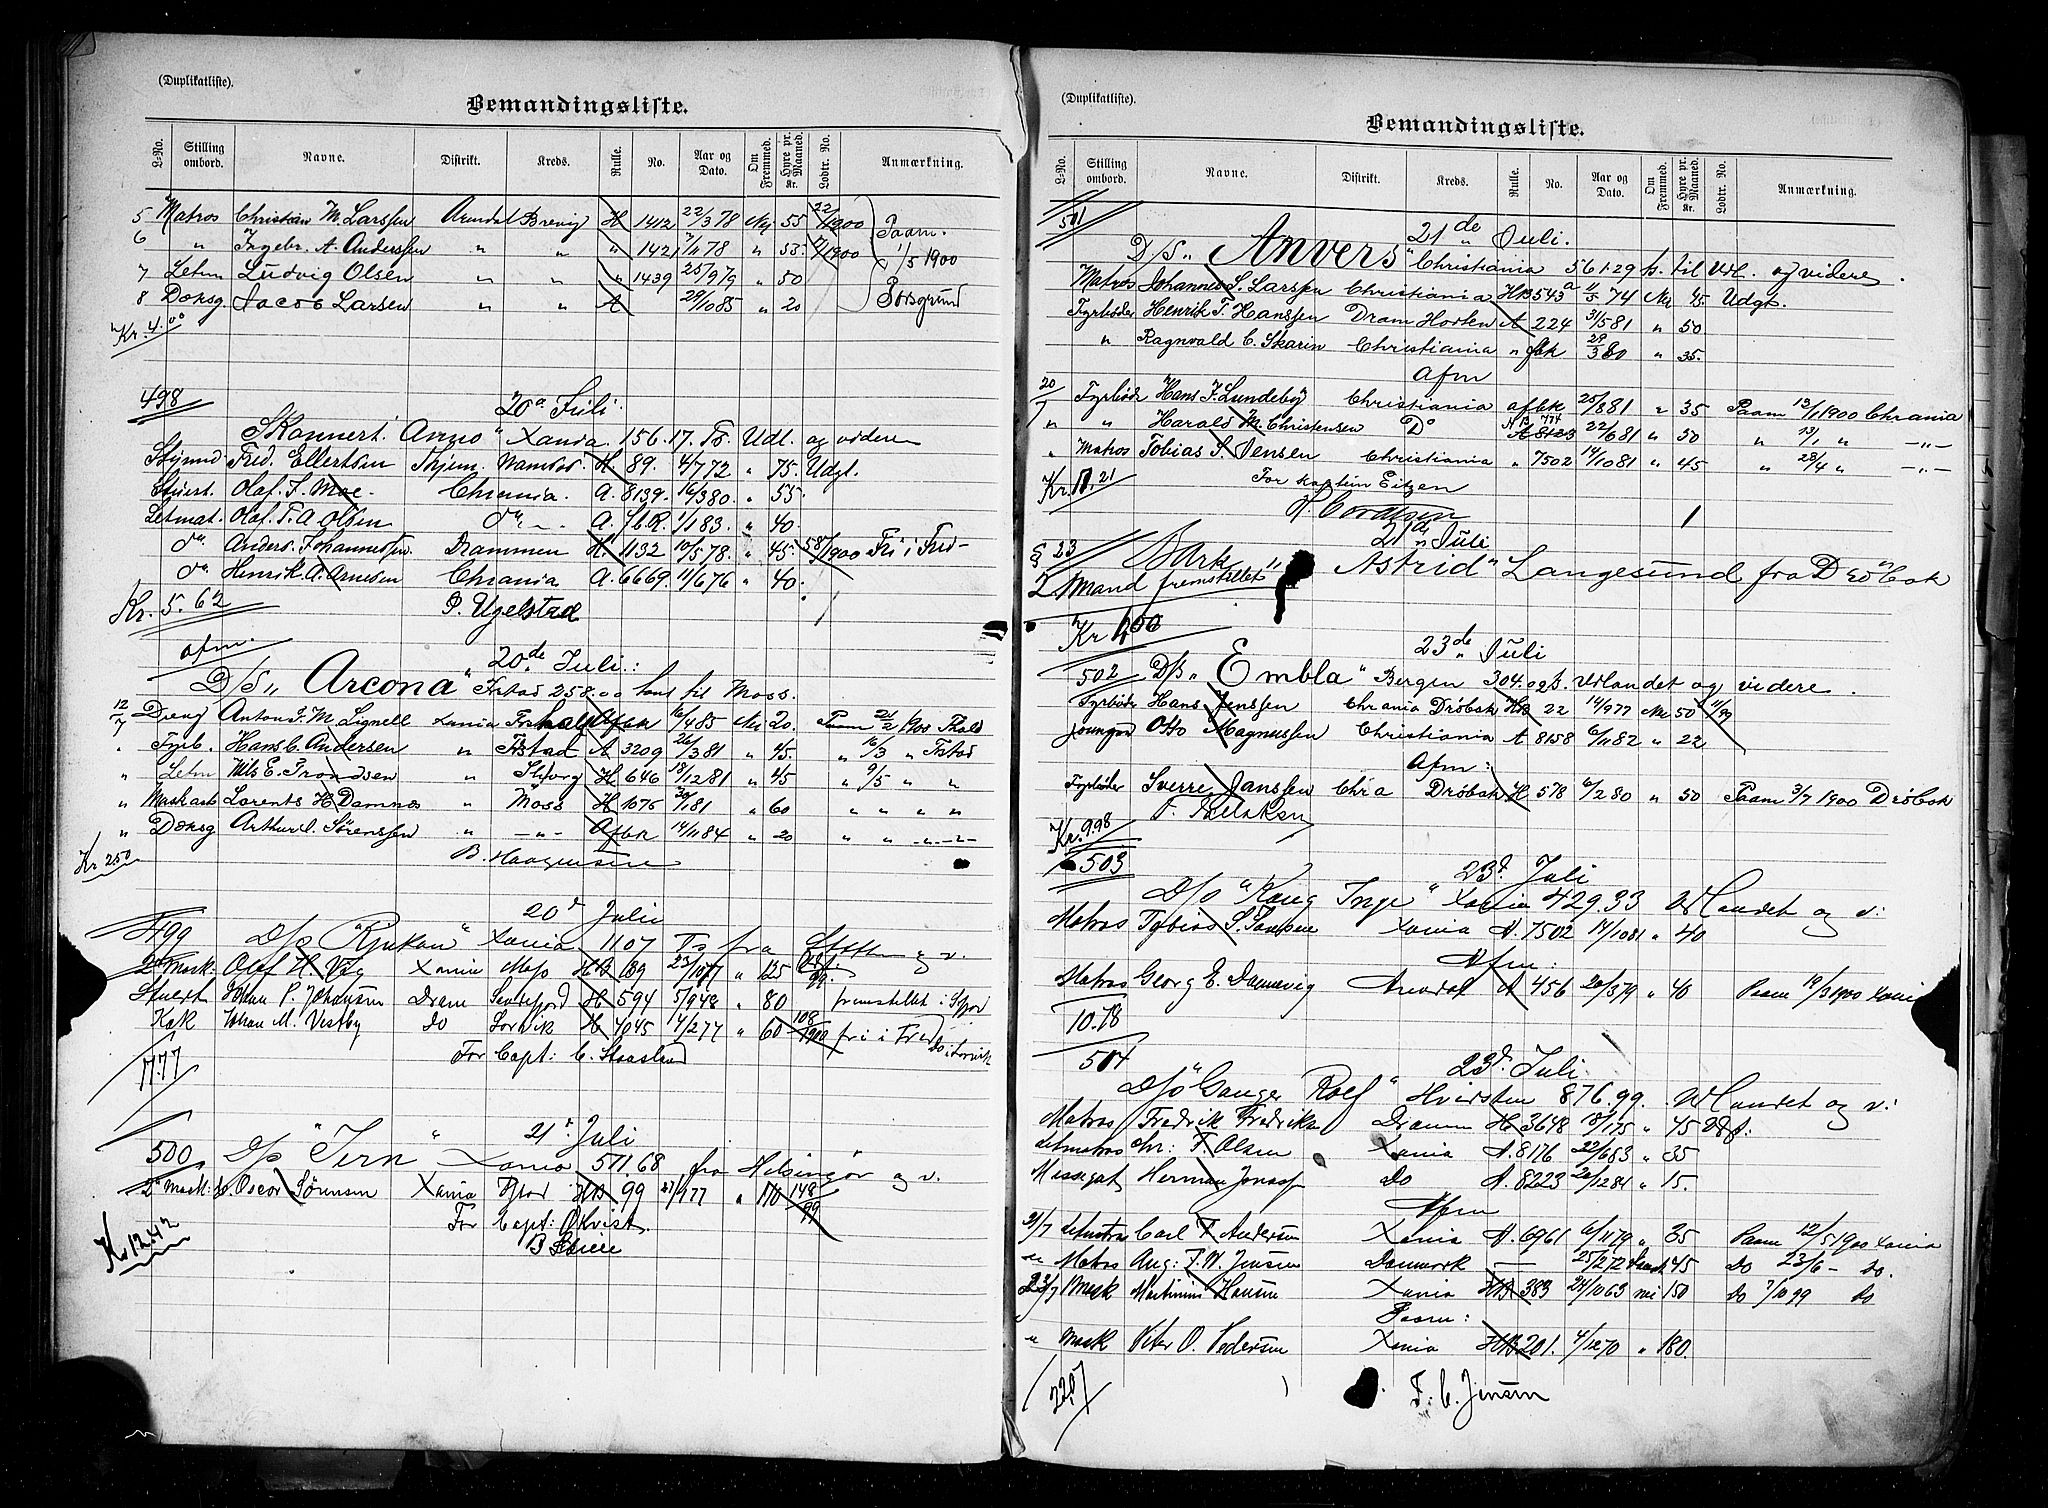 (Duplikatliste).
Bemandingsliste.
L-No. Stilling ombord. Navne. Distrikt. Kreds. Rulle. No. Aar og Dato. Om Fremmed. Hyre pr. Maaned. Kr. Lodtr. No. Anmærkning.
5 Matros Christian M Larssen Arendal Brevig H 1412 22/3 78 Nei 55 22/1900 Paam.
6 " Ingebr. A. Anderssen " " " 1421 1/11 78 " 55 7/1900 1/5 1900
7 Letm Ludvig Olsen " " " 1439 25/9 79 " 50
8 Dæksg. Jacob Larsen " " A 29/10 85 " 20 Porsgrund
Kr. 4.00
498
20de Juli.
Skonnert. "Anno" Xania. 156.17. Ts. Udl. og videre
Styrmd. Fred. Ellertsen Thjem. Namsos. H 89. 4/7 72 " 75. Udgl.
Stuert. Olaf. F. Moe. Chrania. A. 8139. 16/3 80. " 55.
Letmat. Olaf. T. A Olsen do A. fbk. 1/1 83. " 40.
do Anders. Johannessen. Drammen H. 1132 10/5 78. " 45. 58/1900 Fri i Fred-
do Henrik. A. Arnesen Chrania A. 6669. 11/6 76 " 40.
Kr. 5.62 P. Ugelstad
afm. 20de Juli.:
D/S "Arcona" Frstad 258.00 tons til Moss.
12/7 Dreng Anton J. M. Lignell Xania Frhald Afbk 16/4 85 Nei 20. Paam 21/2 1900 Fhald
" Fyrb. Hans C. Andersen " Frstad A 3209 26/3 81 " 45. " 16/3 " Frstad
" Letm Nils E. Trondsen " Sbforg H 646 18/12 81 " 45 " 9/5 " "
" Maskast Lorents H Damnes " Moss H 1076 30/1 81 " 60 " " " "
" Dæksg Arthur O. Sørenssen " -"- Afbk 14/11 84 " 20 " " -"-
Kr 2.50 B. Haagensen
499
20de Juli
D/S "Rjukan" Xania 1107 Ts fra Stettin og v.
2 Mask. Olaf H. Vig Xania Moss HB 189 23/10 77 " 125
Stuert Johan P. Johansen Dram Sandefjord H 594 5/9 48 " 80 fremstillet i
Kok Johan M. Vestby do Larvik H 4045 4/2 77 " 60 108/1900 fri i Fred do i Larvik
For Capt: C. Staasland
17.77
500
21de Juli
D/S "Tern" Xania 511 68 fra Helsingør og v.
2 Mask: C. Oscar Sørensen Xania HB 99 27/9 77 " 170 148/99
For Capt: Økvist.
K. 12.42

(Duplikatliste).
Bemandingsliste.
L-No. Stilling ombord. Navne. Distrikt. Kreds. Rulle. No. Aar og Dato. Om Fremmed. Hyre pr. Maaned. Kr. Lodtr. No. Anmærkning.
501
21de Juli.
D/S "Anvers" Christiania 561.29 ts. til Udl. og videre.
Matros Johannes S. Larssen Christiania HB 543a 11/5 74 Nei 45 Udgt.
Fyrbøder Henrik T. Hanssen Dram Horten A 224 31/5 81 " 50
" Ragnvald C. Skarin Christiania " fbk 29/3 80 " 35.
Afm
20/7 Fyrbøde Hans J. Lundeby Christiania afbk 25/8 81 " 35 Paam 13/1 1900 Chrania
" " Harald M. Christensen Do A 8123 22/6 81 " 50 " 13/1 " -"-
" Matros Tobias S. Jensen Christiania " 7502 14/10 81 " 45 " 28/4 " -"-
Kr. 11.21 For kaptein Eitzen
§ 23 21de Juli
Bark "Astrid" Langesund fra Drøbak
2 Mand fremstillet
Kr 1.00
23de Juli
502 D/S "Embla" Bergen 304.09 ts. Udlandet og videre.
Fyrbøder Hans Jenssen Chrania Drøbak HB 22 14/9 77 Nei 50 11/99
Jungm Otto Magnussen Christiania A 8158 6/11 82 " 22
Afm:
Fyrbøder Sverre Janssen Chria Drøbak H 578 6/2 80 " 50 Paam 3/7 1900 Drøbak
Kr. 9.98
503
23de Juli
D/S "Kong Inge" Xania 429.33 Udlandet og v:
Matros Tobias S. Jansen Xania A. 7502 14/10 81 " 40
Afm:
Matros Georg E Damsvig Arendal A 456 20/3 79 " 40 Paam 19/3 1900 Xania
10.78
504
23de Juli.
D/S "Ganger Rolf" Hvidsten 876.99. Udlandet og v:
Matros Fredrik Fredriksen Drammen H 3648 18/1 75 " 45 Udgt.
Letmatros Chr: F. Olsen Xania A. 8176 22/6 83 " 35
Messegut Herman Jonass Do A. 8223 20/12 84 " 15.
Afm
21/7 Letmatros Carl F. Andersen Xania A. 6961 6/11 79 " 35 Paam 12/5 1900 Xania
" Matros Aug: F. W. Jensen Danmark — 25/2 72 Dansk 45 Do 23/6 - Do.
23/7 Mask Martinius Hansen Xania HB 383 24/10 63 nei 150 Do 7/10 99 Do
Paam:
" Mask Peter O. Pedersen Xania HB 201. 4/12 70 " 180.
22.07 F. C. Jensen